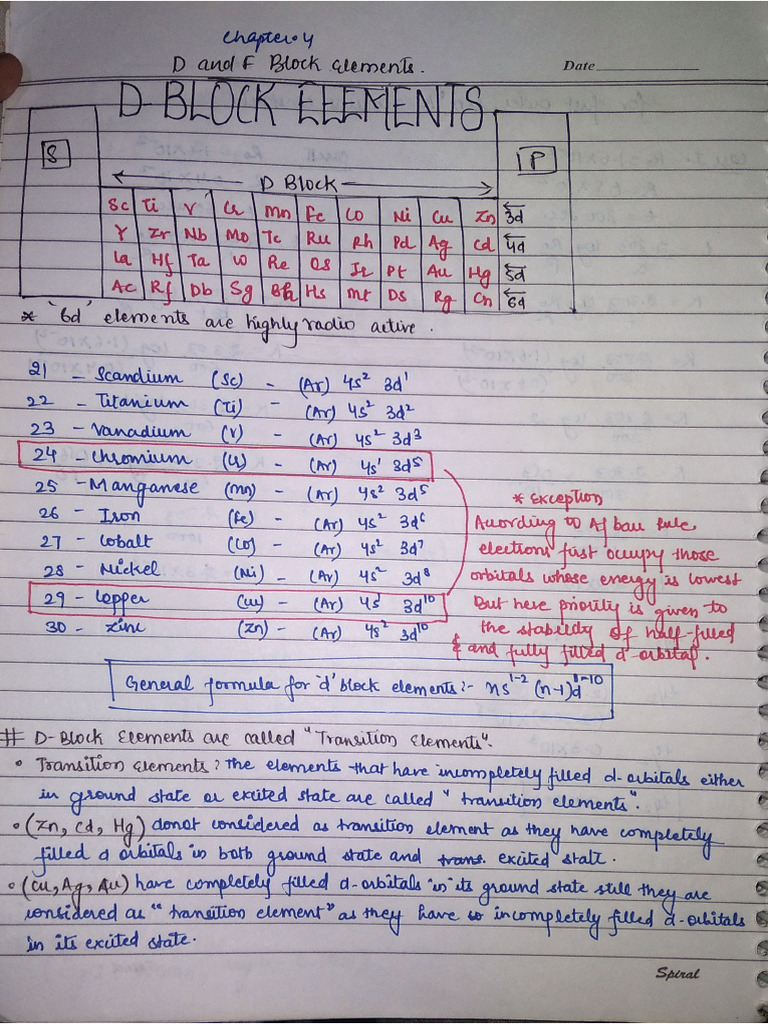 Chapter-4
D and F Block Elements.
Date
D-BLOCK ELEMENTS
S
P
D Block
Sc Ti V Cr Mn Fe Co Ni Cu Zn 3d
Y Zr Nb Mo Tc Ru Rh Pd Ag Cd 4d
La Hf Ta W Re Os Ir Pt Au Hg 5d
Ac Rf Db Sg Bh Hs Mt Ds Rg Cn 6d
* '6d' elements are highly radio active.
21 - Scandium (Sc) - (Ar) 4s² 3d¹
22 - Titanium (Ti) - (Ar) 4s² 3d²
23 - Vanadium (V) - (Ar) 4s² 3d³
24 - Chromium (Cr) - (Ar) 4s¹ 3d⁵
25 - Manganese (Mn) - (Ar) 4s² 3d⁵
26 - Iron (Fe) - (Ar) 4s² 3d⁶
27 - Cobalt (Co) - (Ar) 4s² 3d⁷
28 - Nickel (Ni) - (Ar) 4s² 3d⁸
29 - Copper (Cu) - (Ar) 4s¹ 3d¹⁰
30 - Zinc (Zn) - (Ar) 4s² 3d¹⁰
* Exception
According to Afbau Rule,
electrons first occupy those
orbitals whose energy is lowest
But here priority is given to
the stability of half-filled
& and fully filled d-orbital.
General formula for 'd' block elements:- ns¹⁻² (n-1)d¹⁻¹⁰
# D-Block Elements are called "Transition Elements".
• Transition Elements: the elements that have incompletely filled d-orbitals either
in ground state or excited state are called "transition elements".
• (Zn, Cd, Hg) donot considered as transition element as they have completely
filled d orbitals in both ground state and trans. excited state.
• (Cu, Ag, Au) have completely filled d-orbitals 'in' its ground state still they are
considered as "transition element" as they have so incompletely filled d-orbitals
in its excited state.
Spiral